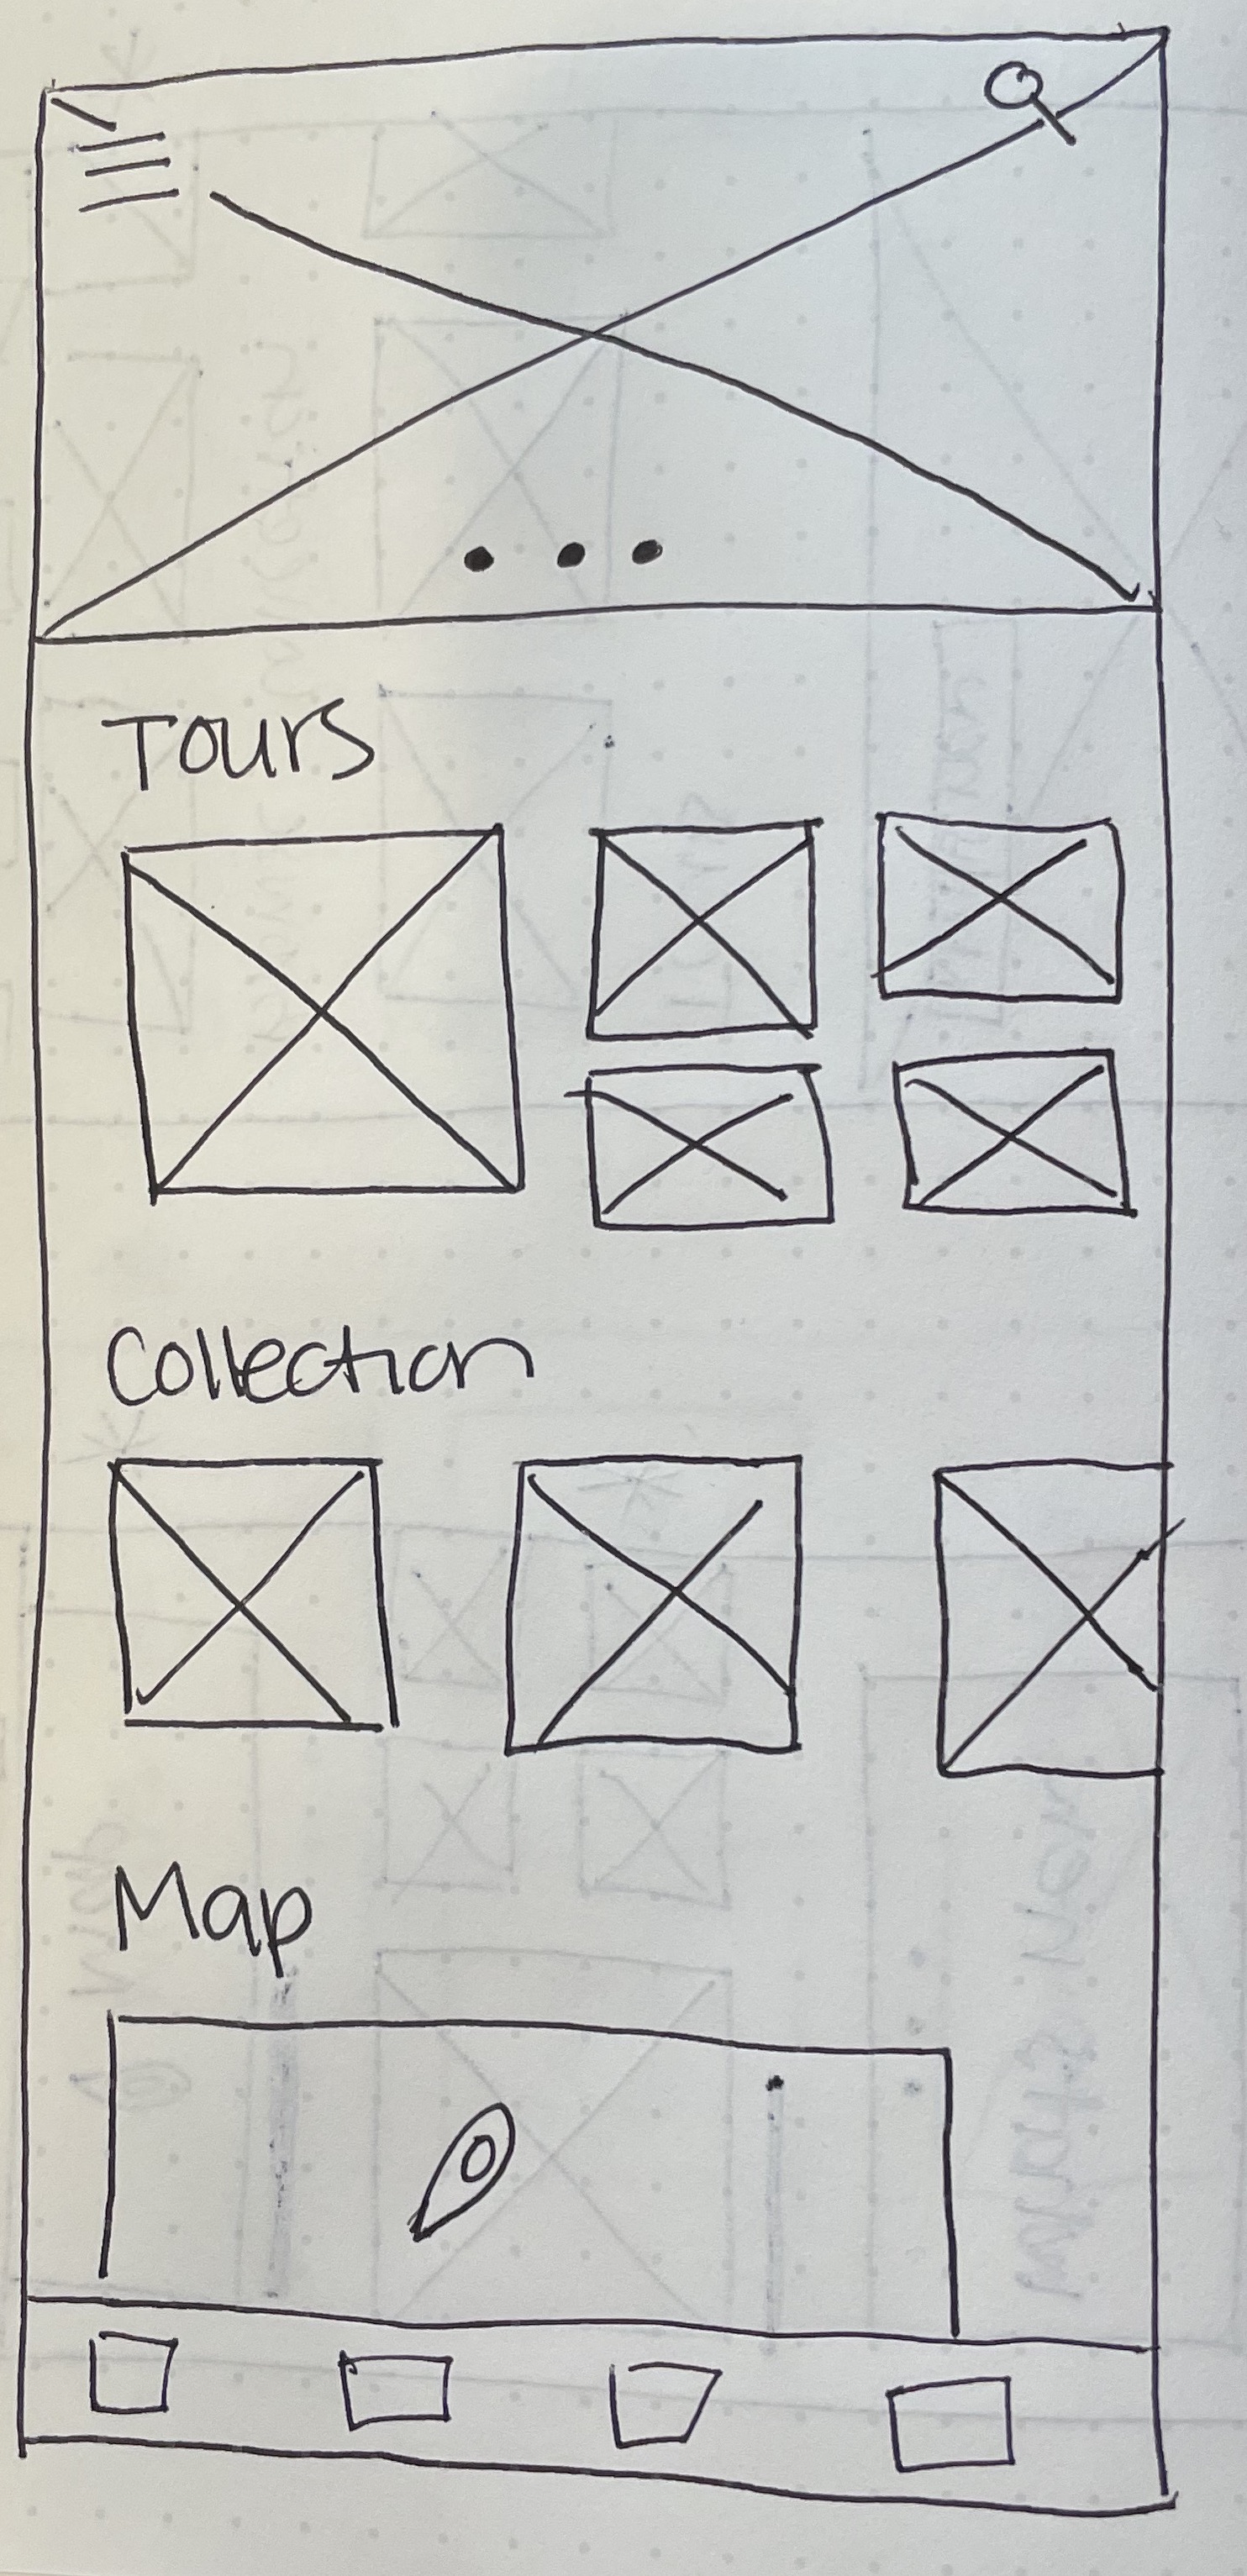 Tours
Collection
Map